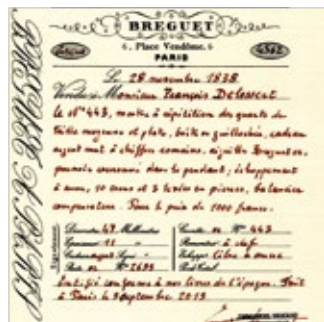 BREGUET
6, Place Vendôme, 6
PARIS
4362
Le 28 novembre 1838
Vendu à Monsieur François Delessert
le N° 443, montre à répétition des quarts de
taille moyenne et plate, boîte or guillochée, cadran
argent mat à chiffres romains, aiguilles Breguet or,
poussoir dans le pendant, échappement
à ancre, 10 trous et 2 levées en pierres, balancier
compensateur. Pour le prix de 1000 francs.
Diamètre 47 Millimètres
Cuvette or N° 443
Épaisseur 11 "
Remontoir à clef
Cadran argent Signé
Echapp. libre à ancre
Boîte or N° 2695
Certifié conforme à nos livres de l'époque. Fait
à Paris le 3 septembre 2013